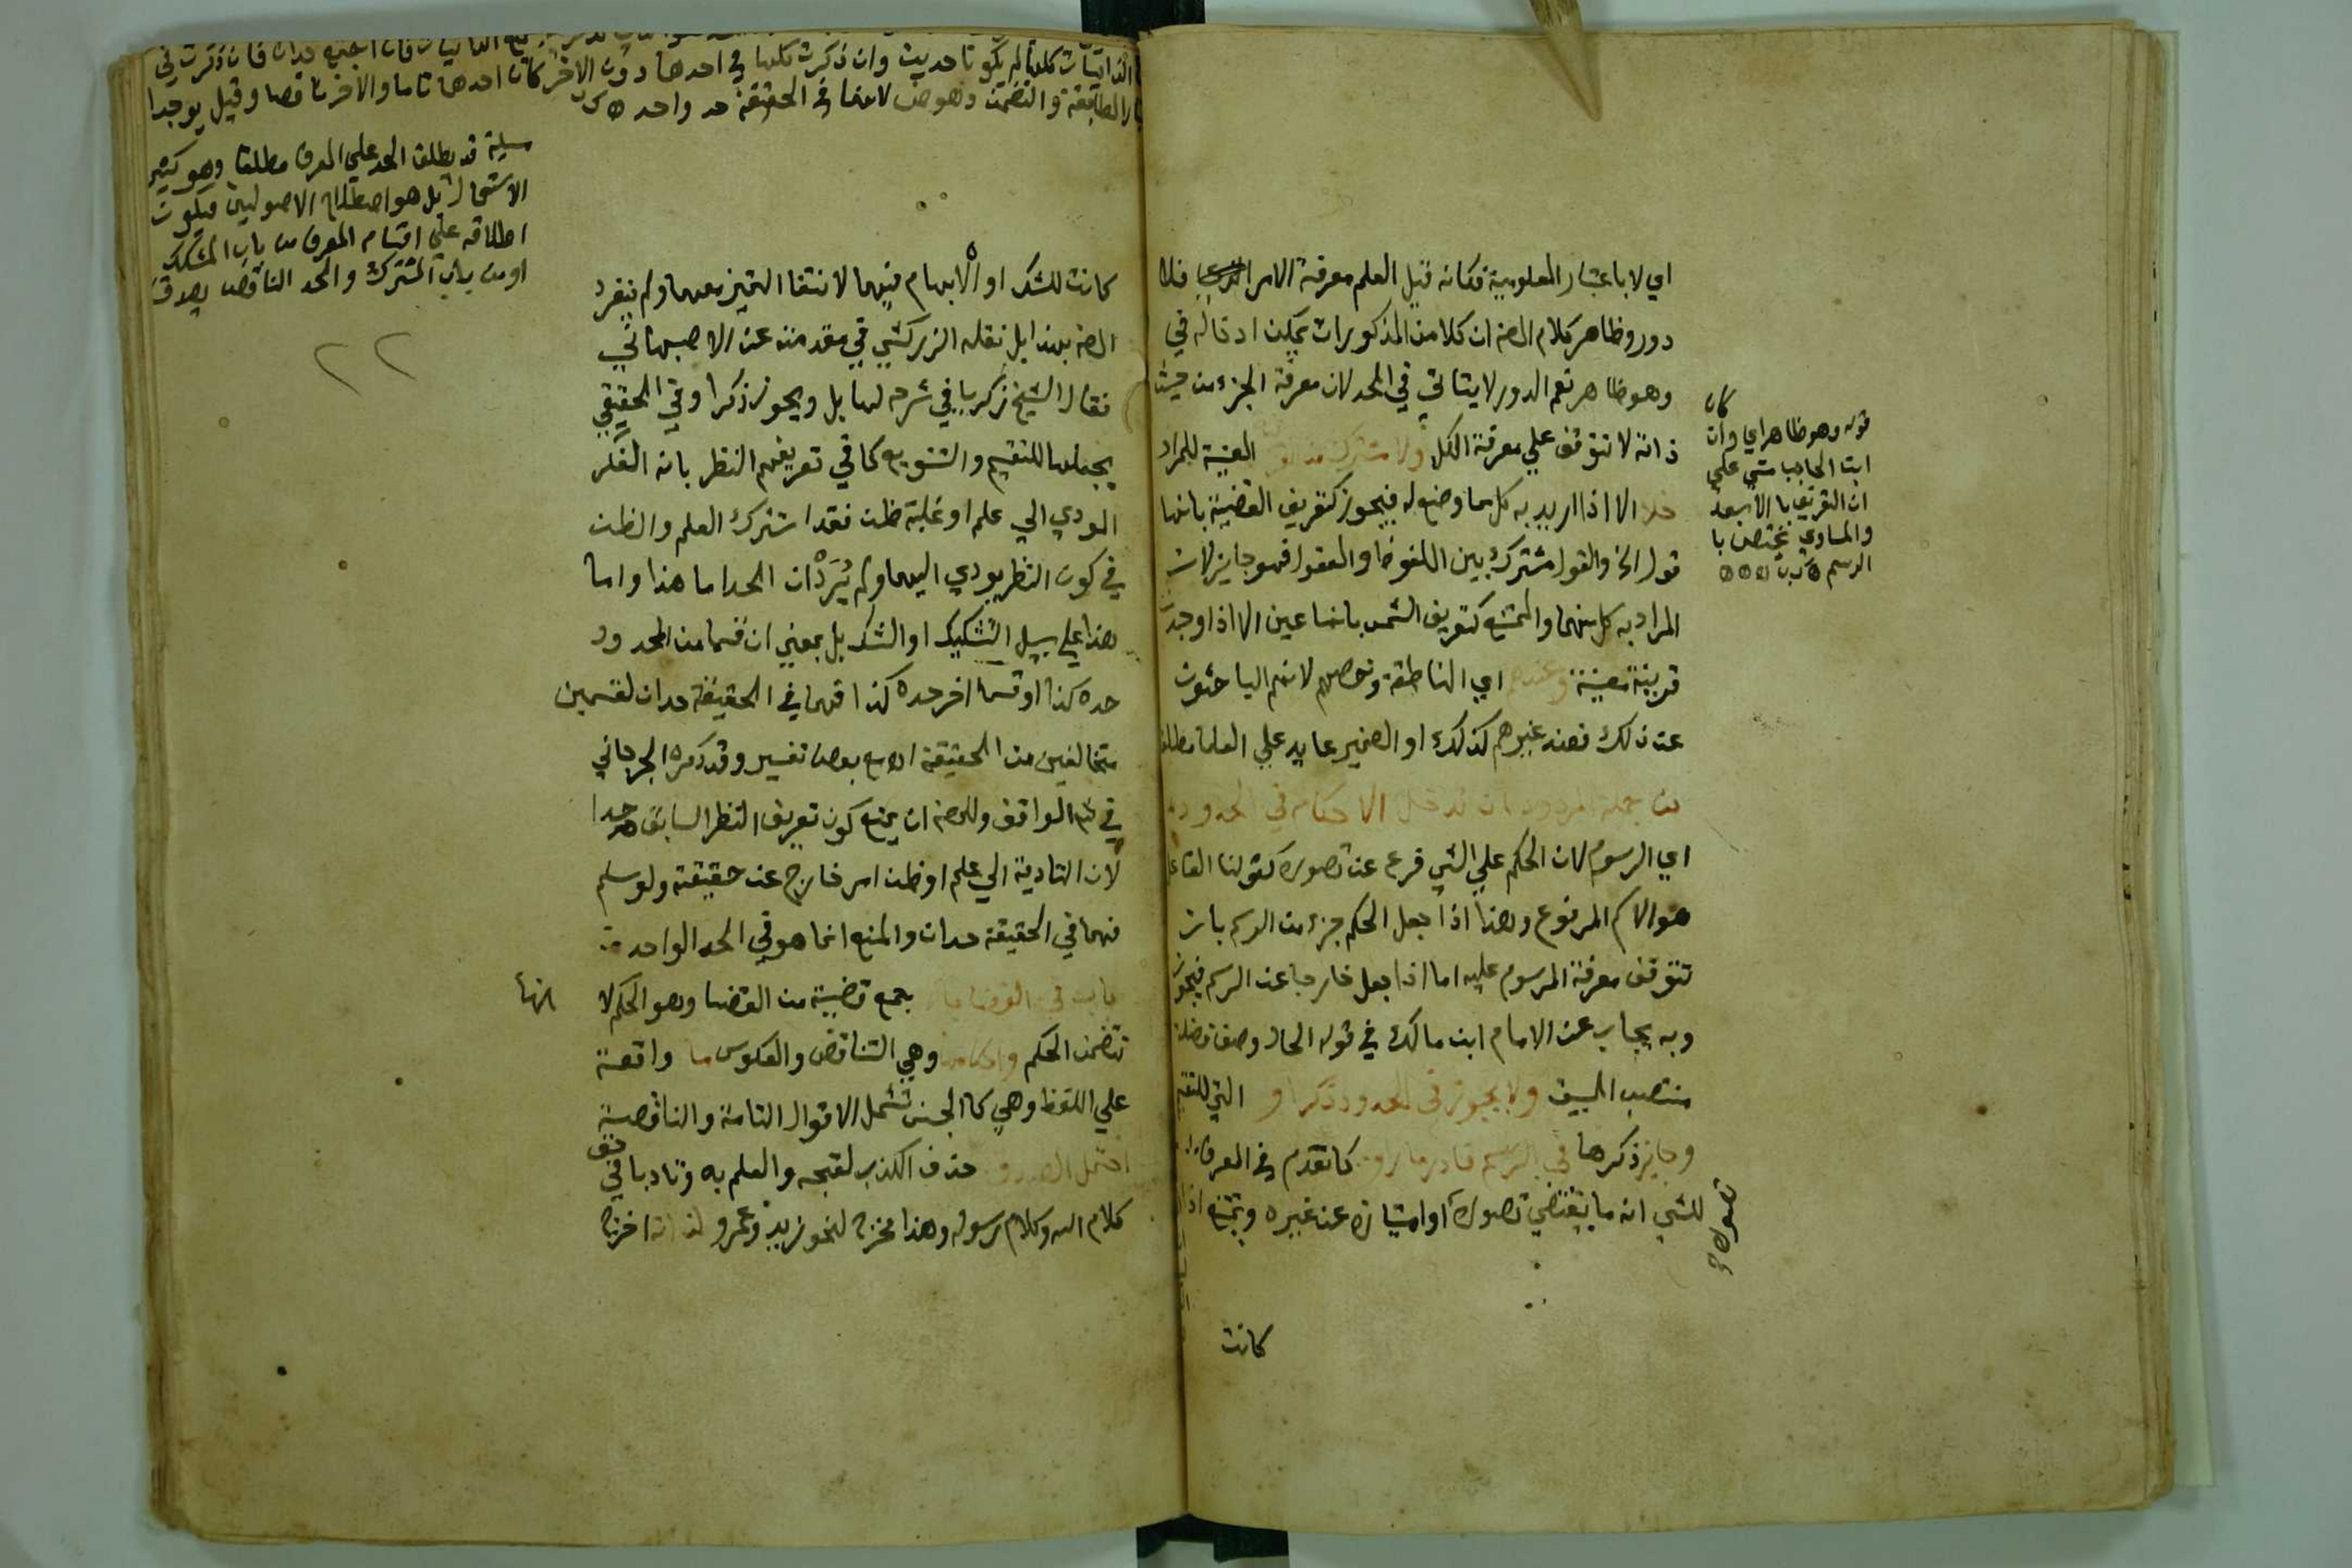 اي لا باعتبار المعلومية فكانه قيل العلم معرفة الامر فلا
دور وظاهر كلام المص ان كلا من المذكورات يمكن ادخاله في
وهو ظاهر نعم الدور لا يتاتي في الحد لان معرفة الجزء من حيث
ذاته لا تتوقف علي معرفة الكل ولا مشترك من القرينة المعينة للمراد
خلا الا اذا اريد به كل ما وضع له فيجوز كتعريف القضية بانها
قول الخ والقول مشترك بين الملفوظ والمعقول فهو جايز لان
المراد به كل منهما والممتنع كتعريف الشمس بانها عين الا اذا وجد
قرينة معينة وعندهم اي المناطقة وخصهم لانهم الباحثون
عن ذلك فعند غيرهم كذلك او الضمير عايد علي العلما مطلقا
من جملة المردود ان تدخل الاحكام في الحدود
اي الرسوم لان الحكم علي الشي فرع عن تصوره كقولنا الفاعل
هو الاسم المرفوع وهذا اذا جعل الحكم جزء من الرسم بان
تتوقف معرفة المرسوم عليه اما اذا جعل خارجا عن الرسم فيجوز
وبه يجاب عن الامام ابن مالك في قوله الحال وصف فضلة
منتصب البيت ولا يجوز في الحدود ذكر او التي للتقسيم
وجايز ذكرها في الرسم فادر ما رووا كما تقدم في المعرف
للشي انه ما يقتضي تصوره او امتيازه عن غيره ويمتنع اذا
كانت
قوله وهو ظاهر اي وان كان
ابن الحاجب مشي علي
ان التعريف بالابعد
والمساوي يختص با
الرسم
كانت للشك او الابهام فيهما لانتفا التميز معهما ولم ينفرد
المص بهذا بل نقله الزركشي في مقدمته عن الاصبهاني
فقال الشيخ زكريا في شرحه لها بل ويجوز ذكر او في الحقيقي
بجعلها للتقسيم والتنويع كما في تعريفهم النظر بانه الفكر
المودي الي علم او غلبة ظن فقد اشترك العلم والظن
في كون النظر يودي اليهما ولم يُرَدْ ان الحد اما هذا واما
هذا علي سبيل التشكيك او الشك بل بمعني ان قسما من المحدود
حده كذا وقسما اخر حده كذا فهما في الحقيقة حدان لقسمين
متخالفين من الحقيقة مع بعض تفسير وقد ذكره الجرجاني
في شرح المواقف وللمص ان يمنع كون تعريف النظر السابق حدا
لان التادية الي علم او ظن امر خارج عن حقيقته ولو سلم
فهما في الحقيقة حدان والمنع انما هو في الحد الواحد
باب في القضايا جمع قضية من القضا وهو الحكم لا نها
تتضمن الحكم واحكامها وهي التناقض والعكوس ما واقعة
علي اللفظ وهي كالجنس تشمل الاقوال التامة والناقصة
احتمل الصدق حذف الكذب لقبحه والعلم به وتادبا في حق
كلام الله وكلام رسوله وهذا مخرج لنحو زيد وعمرو لذاته اخرج
الذاتيات كلها لم يكونا حديث وان ذكرت كلها في احدها دون الاخر كان احدها تاما والاخر ناقصا وقيل يوجدا
بالمطابقة والتضمن وهو ص لانهما في الحقيقة حد واحد
مسيلة قد يطلق الحد علي المعرف مطلقا وهو كثير
الاستعمال بل هو اصطلاح الاصوليين فيكون
اطلاقه علي اقسام المعرف من باب المشكك
او من باب المشترك والحد الناقص يصدق
٢٢